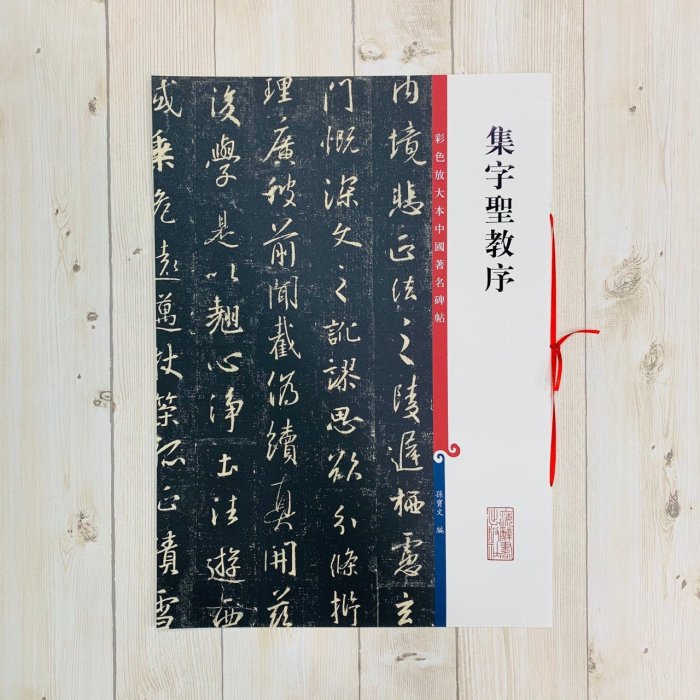 集字聖教序
彩色放大本中國著名碑帖
孫寶文 編
内境悲正法之陵遲栖慮玄
門慨深文之訛謬思欲分條析
理廣彼前聞截偽續真開茲
後學是以翹心淨土往遊西
域乘危遠邁杖策孤征積雪